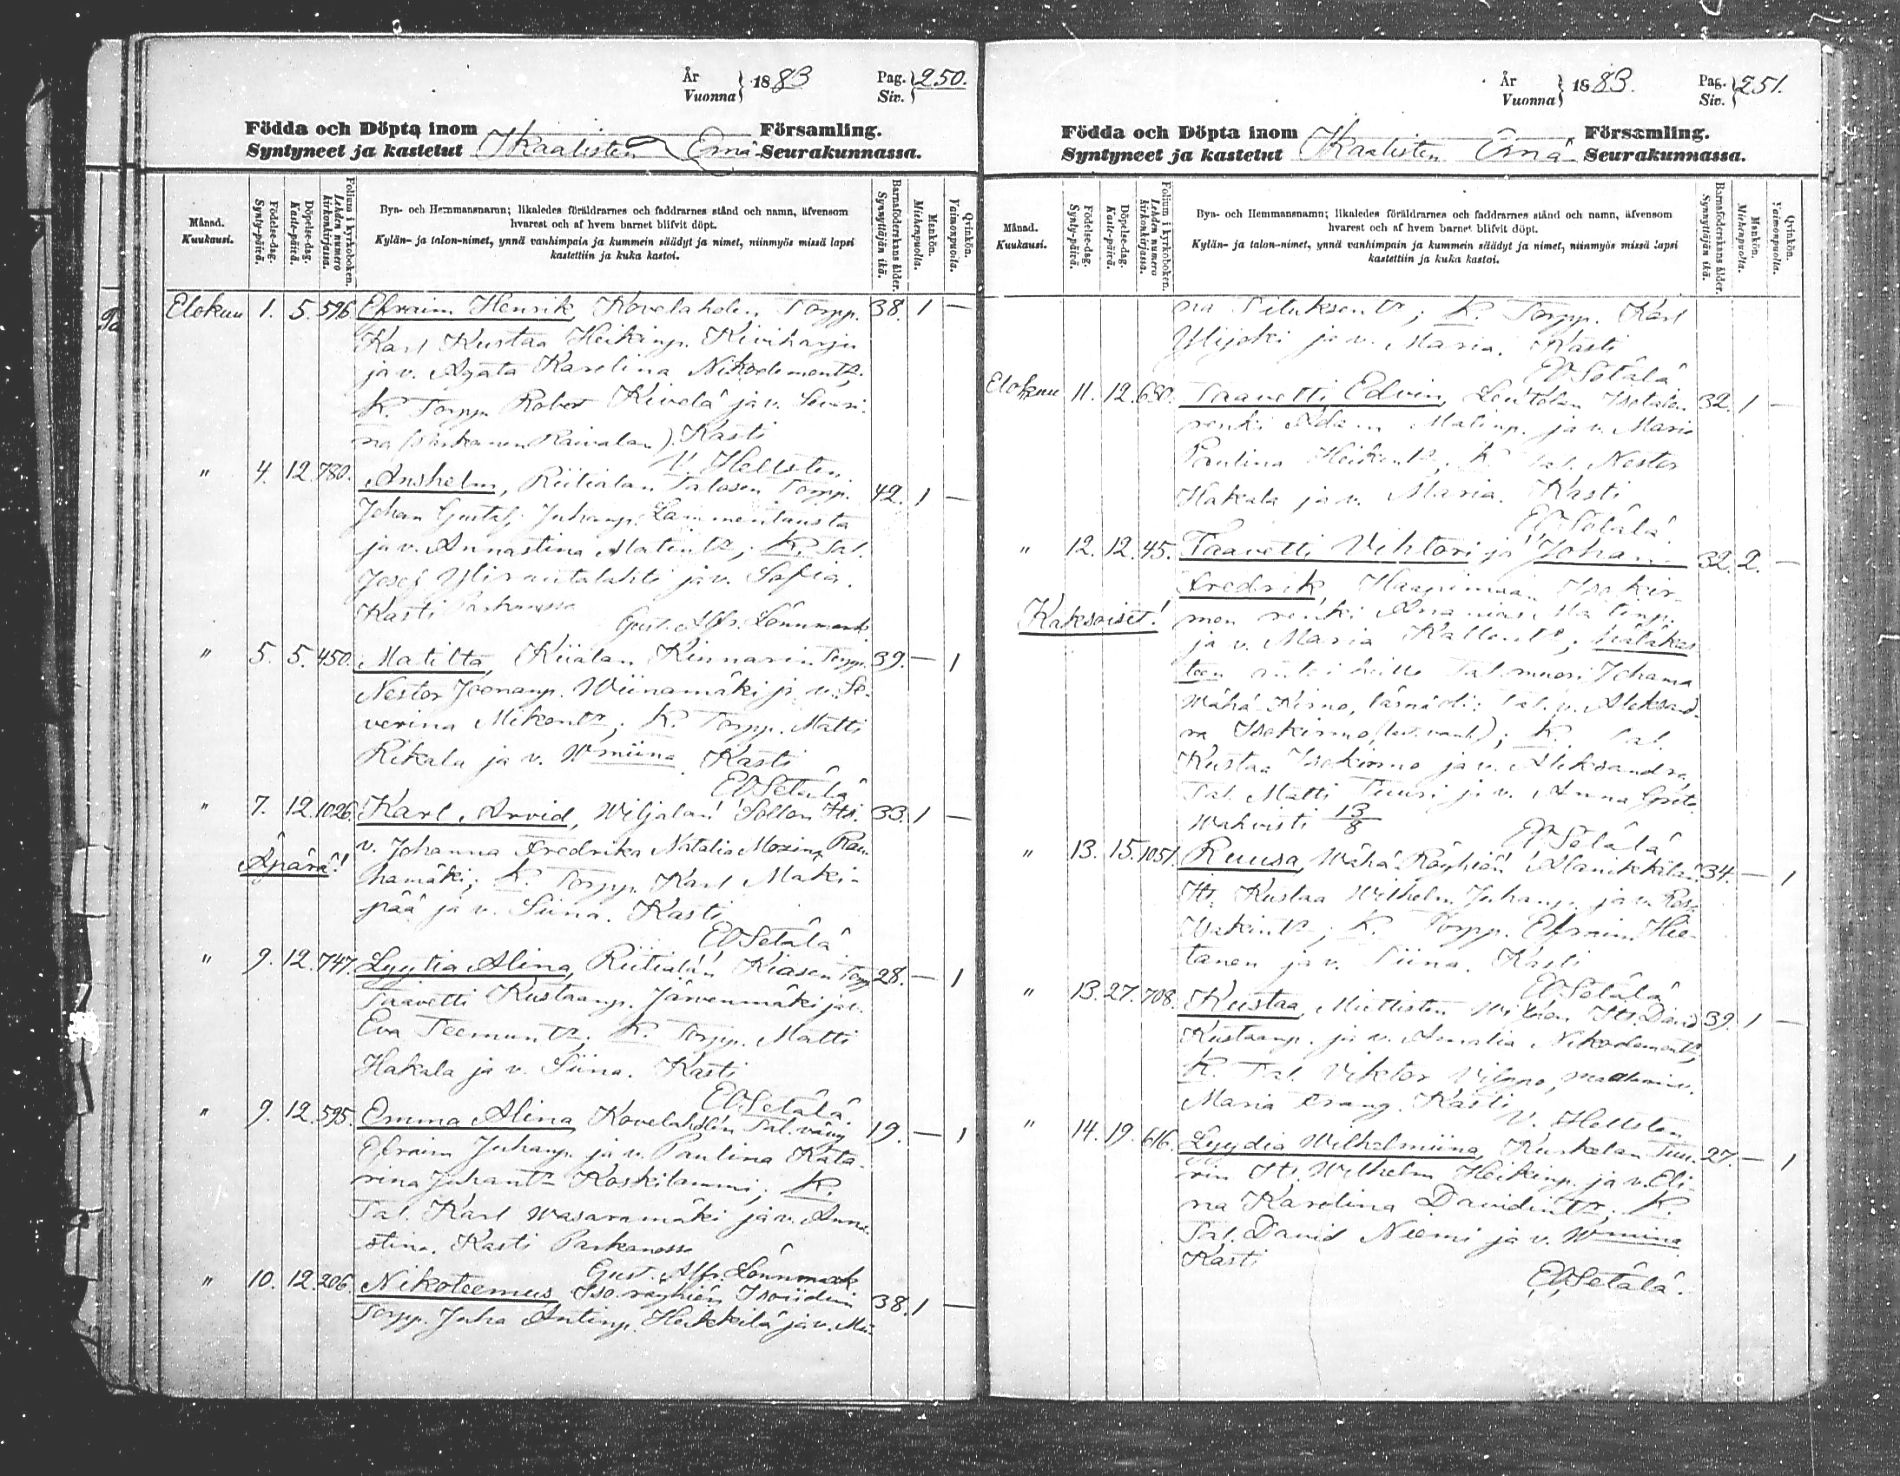 År Vuonna } 1883 Pag. Siv. } 250.
Födda och Döpta inom Församling.
Syntyneet ja kastetut Ikaalisten Emä Seurakunnassa.
Månad. Kuukausi.
Födelse-dag. Synty-päivä.
Döpelse-dag. Kaste-päivä.
Folium i kyrkoboken. Lehden numero kirkonkirjassa.
Bya- och Hemmansnamn; likaledes föräldrarnes och faddrarnes stånd och namn, äfvensom
hvarest och af hvem barnet blifvit döpt.
Kylän- ja talon-nimet, ynnä vanhimpain ja kummein säädyt ja nimet, niinmyös missä lapsi
kastettiin ja kuka kastoi.
Barnaföderskans ålder. Synnyttäjän ikä.
Mankön. Miehenpuolta.
Qvinkön. Vaimonpuolta.
Elokuu 1. 5. 596 Efraim Henrik, Kovelaholin Torpp. 38. 1 —
Karl Kustaa Heikinp. Kiviharju
ja v. Agata Karolina Nikodementr;
K. Torpp. Robert Kivelä ja v. Severi-
na (Parkanon Raivalan). Kasti
V. Hellsten
" 4. 12. 780. Anshelm, Riitialan Talosen Torpp. 42. 1 —
Johan Gustaf Juhanp. Lammentausta
ja v. Annastina Matintr; K. Tal.
Josef Ylinautalahti ja v. Sofia.
Kasti Parkanossa
Gust. Alfr. Lönnmark
" 5. 5. 450. Matilta, Kiialan Kinnarin Torpp. 39. — 1
Nestor Joonanp. Wiinamäki ja v. Se-
verina Mikontr; K. Torpp. Matti
Rikala ja v. Wmiina. Kasti
EV Setälä
" 7. 12. 1026. Karl Arvid, Wiljalan Sollon Its. 33. 1 —
Äpärä! v. Johanna Fredrika Natalia Mozina Rau-
hamäki; K. Torpp. Karl Maki-
pää ja v. Siina. Kasti
EV Setälä
" 9. 12. 747. Lyytia Alina, Riitialan Kiasen Torpp 28. — 1
Taavetti Kustaanp. Järvenmäki ja v.
Eva Teemuntr; K. Torpp. Matti
Hakala ja v. Siina. Kasti
EV Setälä
" 9. 12. 595. Emma Alina, Kovelahden Tal. vävy 19. — 1
Efraim Juhanp. ja v. Paulina Kata-
rina Juhantr Koskilammi; K.
Tal. Karl Wasaramäki ja v. Anna-
stina. Kasti Parkanossa
Gust. Alfr. Lönnmark
" 10. 12. 206. Nikoteemus, Iso röyhiön Isoiidin 38. 1 —
Torpp. Juha Antinp. Heikkilä ja v. Mii-
År Vuonna } 1883. Pag. Siv. } 251.
Födda och Döpta inom Församling.
Syntyneet ja kastetut Ikaalisten Emä Seurakunnassa.
Månad. Kuukausi.
Födelse-dag. Synty-päivä.
Döpelse-dag. Kaste-päivä.
Folium i kyrkoboken. Lehden numero kirkonkirjassa.
Bya- och Hemmansnamn; likaledes föräldrarnes och faddrarnes stånd och namn, äfvensom
hvarest och af hvem barnet blifvit döpt.
Kylän- ja talon-nimet, ynnä vanhimpain ja kummein säädyt ja nimet, niinmyös missä lapsi
kastettiin ja kuka kastoi.
Barnaföderskans ålder. Synnyttäjän ikä.
Mankön. Miehenpuolta.
Qvinkön. Vaimonpuolta.
na Tiluksentr; K. Torpp. Karl
Ylijoki ja v. Maria. Kasti
EV Setälä.
Elokuu 11. 12. 680. Taavetti Edvin, Leutolan Isotalon 32. 1 —
renki Adam Matinp. ja v. Maria
Paulina Heikintr. K. Tal. Nestor
Hakala ja v. Maria. Kasti
EV Setälä.
" 12. 12. 45. Taavetti Vihtori ja Joha 32. 2. —
Fredrik, Haapimaan Isokir-
Kaksoiset! mon renki Ananias Matinp.
ja v. Maria Kallentr; hätäkas-
teen Tal. muori Johanna
Wähä Kirmo, läsnäoli: Tal. v. Aleksand-
ra Isokirmo; K. Tal.
Kustaa Isokirmo ja v. Aleksandra,
Tal. Matti Tuuri ja v. Anna Greta.
Wahvisti 13/8 EV Setälä
" 13. 15. 1051. Ruusa, Wähä Röyhiön Alanikkilän 34. — 1
It. Kustaa Wilhelm Juhanp. ja v. Rosa
Isakintr; K. Torpp. Efraim Hie-
tanen ja v. Siina. Kasti
EV Setälä
" 13. 27. 708. Kustaa, Miettisten Its. David 39. 1 —
Kustaanp. ja v. Amalia Nikodementr;
K. Tal. Viktor Vilppo,
Maria Kasti
V. Hellsten
" 14. 19. 616. Lyydia Wilhelmiina, Kuskelan Tuu- 27. — 1
rin It. Wilhelm Heikinp. ja v. Eli-
na Karolina Davidintr; K.
Tal. David Niemi ja v. Wmiina
Kasti
EV Setälä.